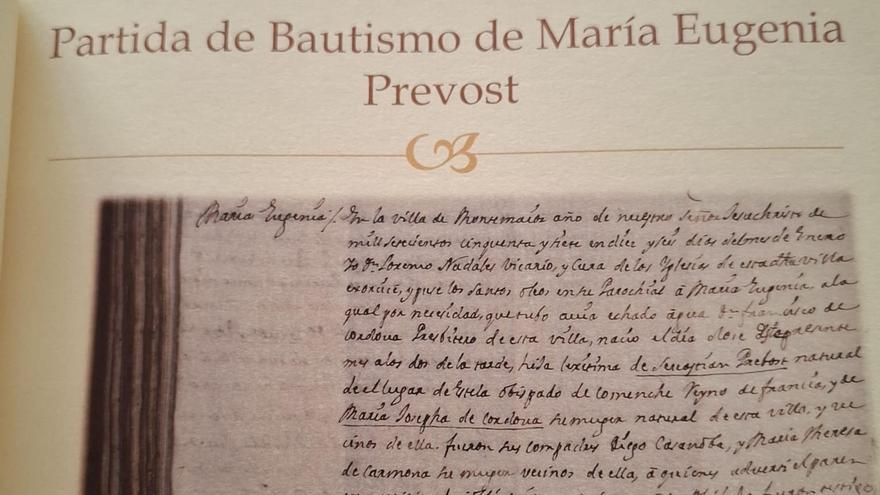 Partida de Bautismo de María Eugenia
Prevost
María Eugenia /. En la villa de Montemaior año de nuestro Señor Jesuchristo de
mill setecientos cinquenta y siete en diez y seis dias del mes de Enero
Yo Dn. Lorenzo Nadales Vicario, y Cura de las Yglesias de esta dha villa
exorcicé, y puse los santos oleos en ste Parochial â Maria Eugenia, a la
qual por necesidad, que tubo avia echado agua Dn. francisco de
Cordova Presbitero de esta villa, nacio el dia dose del presente
mes a las dos de la tarde, hija lexitima de Sevastian Prebost natural
de el lugar de Estela obispado de Comenche Reyno de francia, y de
María Josepha de Cordova su muger natural de esta villa, y ve
cinos de ella. fueron sus compadres Diego Casanoba, y Maria Theresa
de Carmona su muger vecinos de ella, â quienes adverti el paren